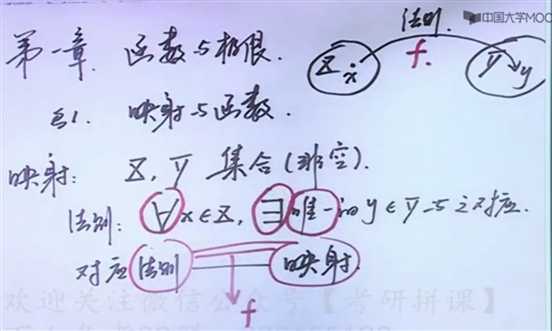 第一章. 函数与极限.
§1. 映射与函数.
映射: X, Y 集合(非空).
法则: ∀x∈X, ∃唯一的y∈Y与之对应.
对应法则 映射.
f
法则.
f.
X x
Y y
中国大学MOO
欢迎关注微信公众号【考研拼课】